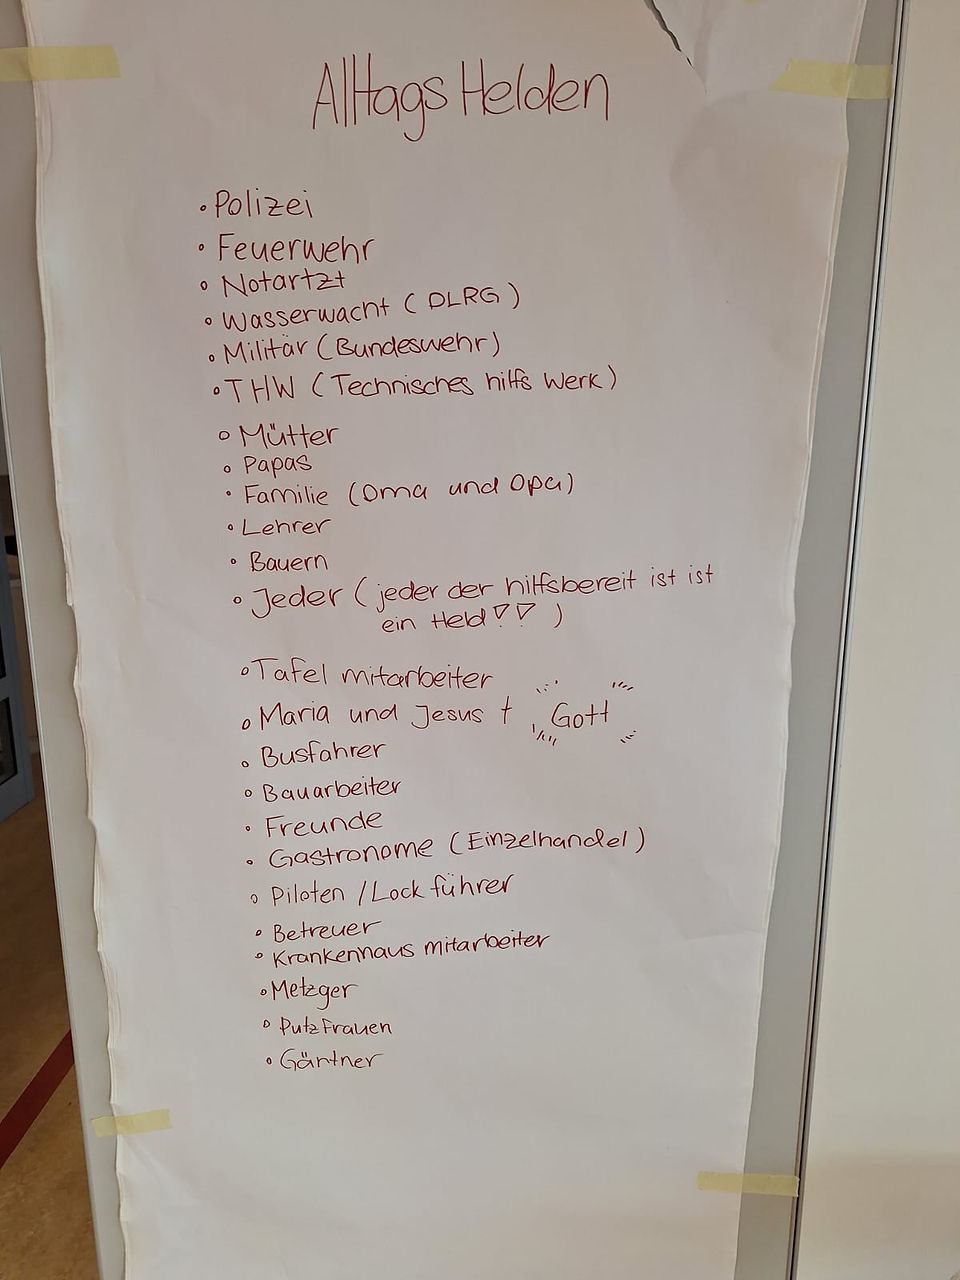 Alltags Helden
• Polizei
• Feuerwehr
• Notartzt
• Wasserwacht (DLRG)
• Militär (Bundeswehr)
• THW (Technisches hilfs Werk)
• Mütter
• Papas
• Familie (Oma und Opa)
• Lehrer
• Bauern
• Jeder (jeder der hilfsbereit ist ist
ein Held!! )
• Tafel mitarbeiter
• Maria und Jesus † Gott
• Busfahrer
• Bauarbeiter
• Freunde
• Gastronome (Einzelhandel)
• Piloten / Lock führer
• Betreuer
• Krankenhaus mitarbeiter
• Metzger
• Putzfrauen
• Gärtner